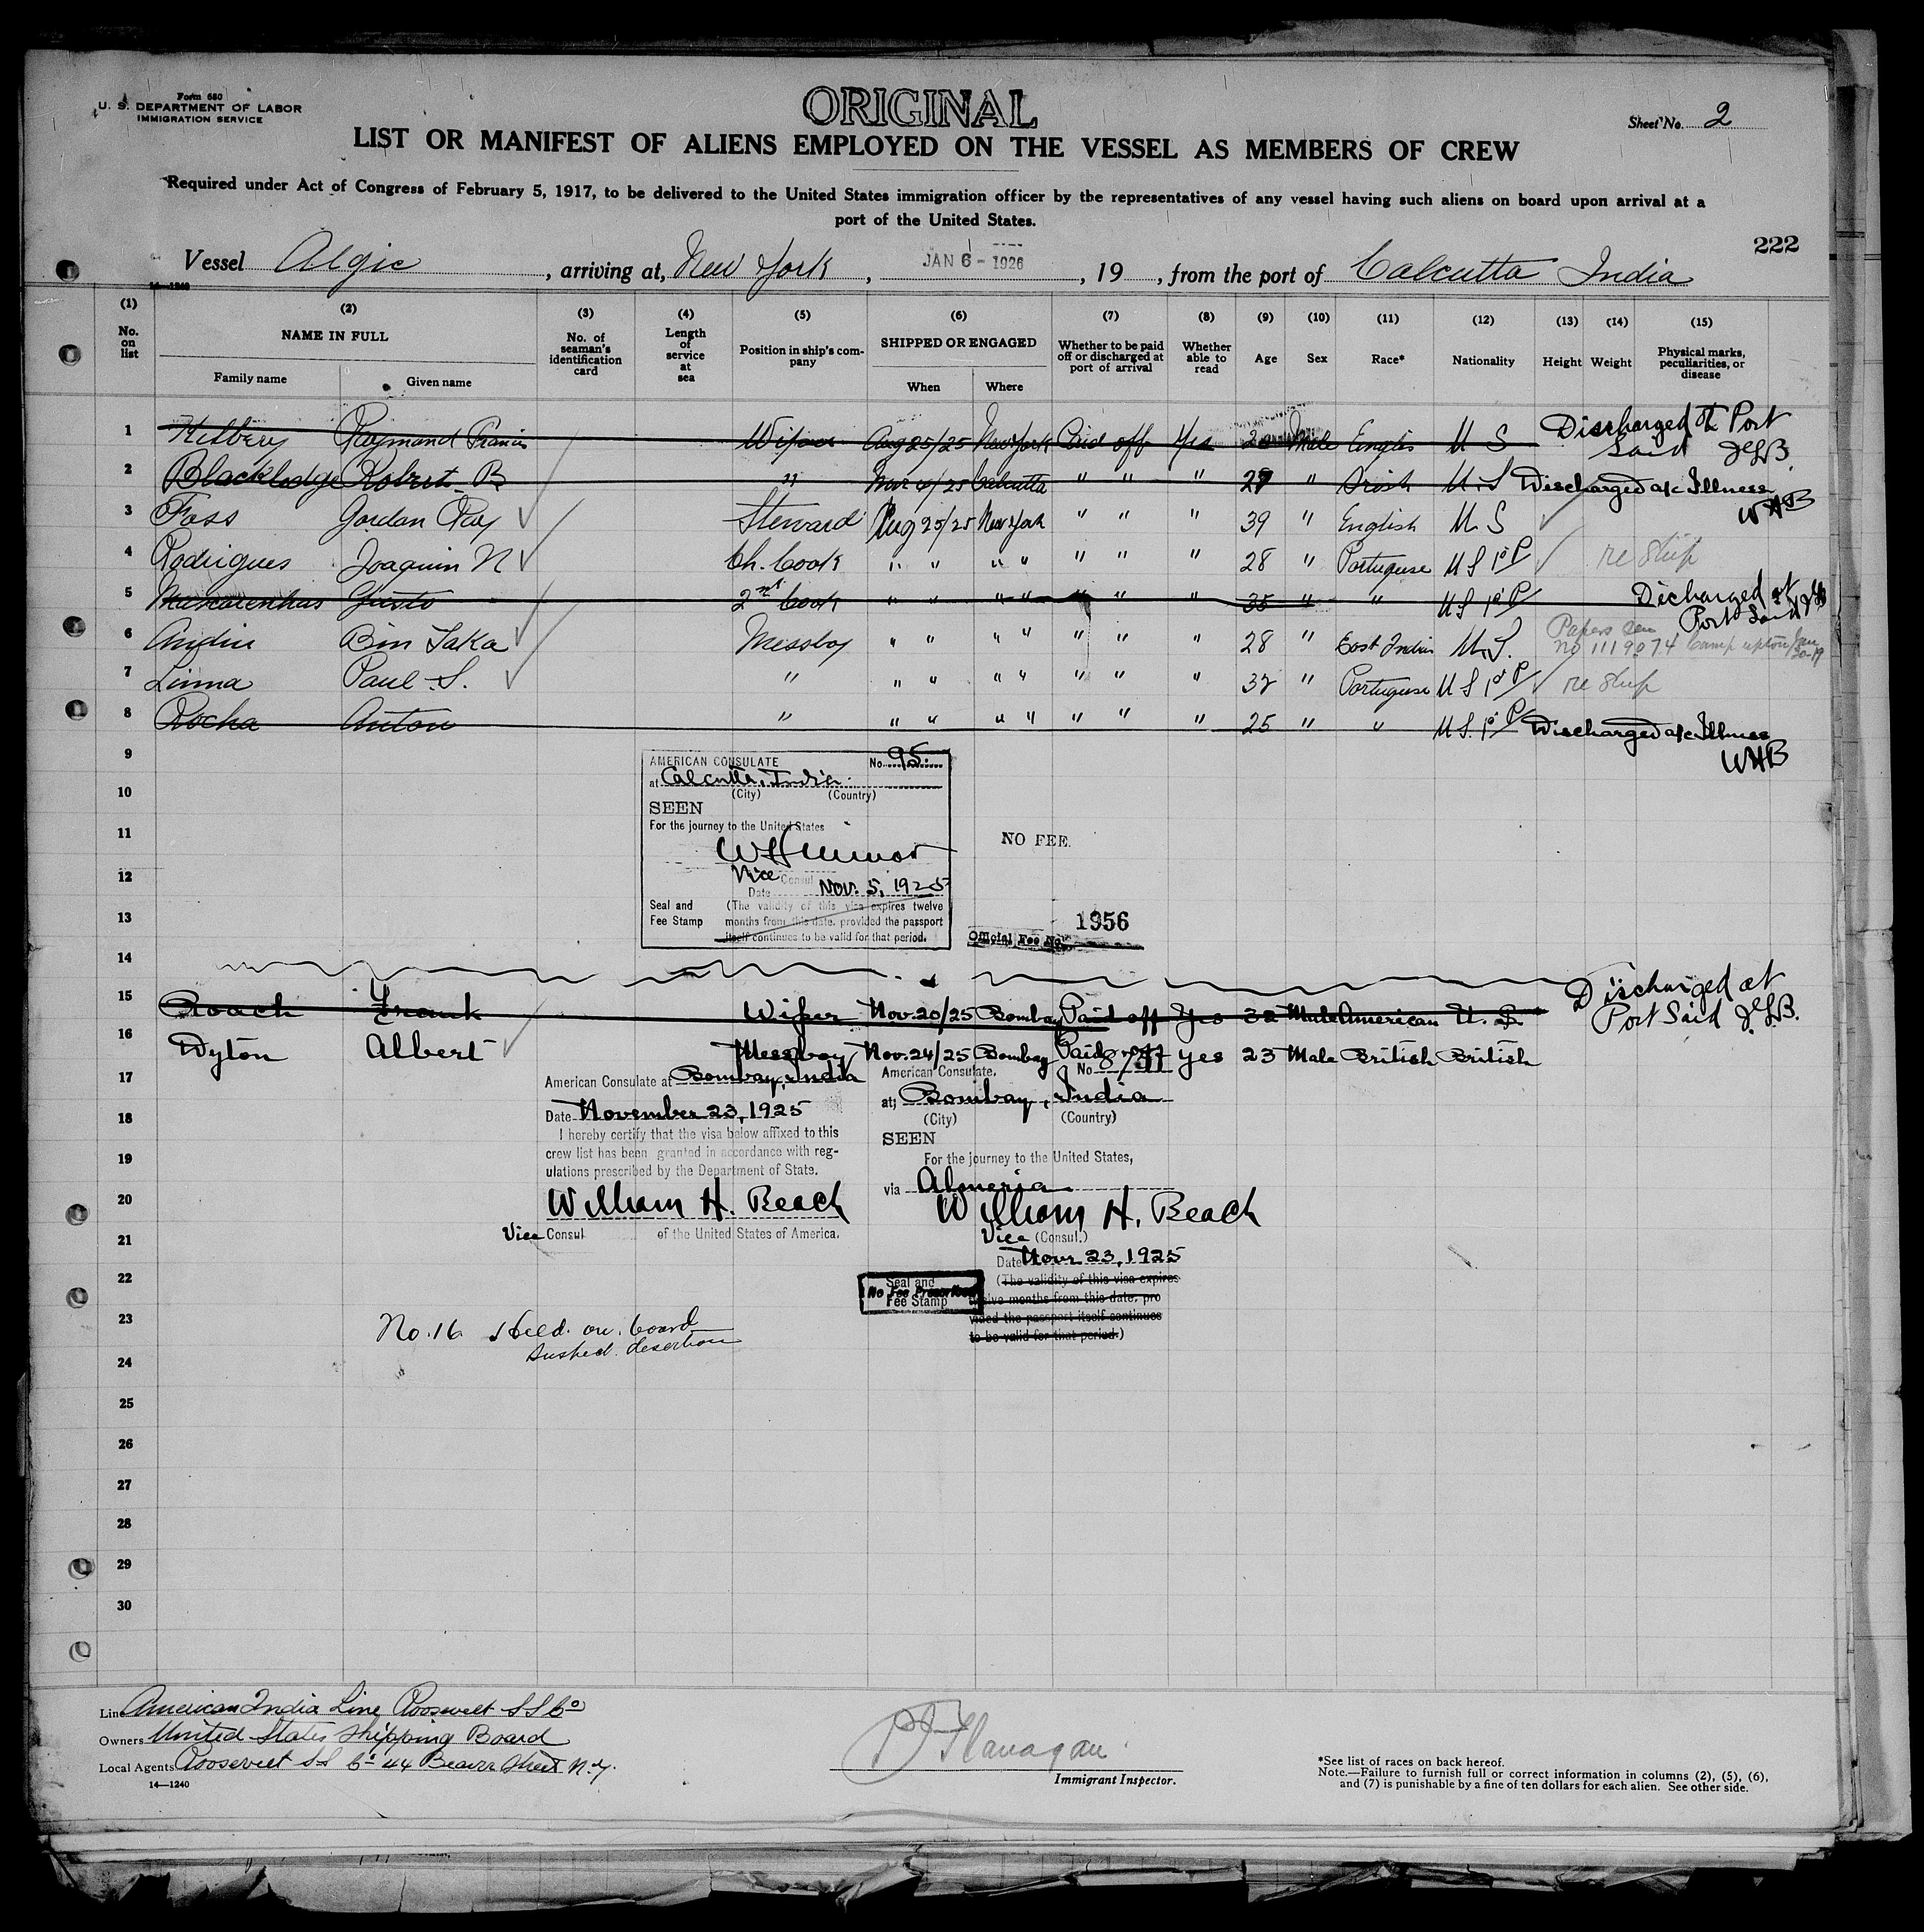 Form 680
U. S. DEPARTMENT OF LABOR
IMMIGRATION SERVICE
ORIGINAL
Sheet No. 2
LIST OR MANIFEST OF ALIENS EMPLOYED ON THE VESSEL AS MEMBERS OF CREW
Required under Act of Congress of February 5, 1917, to be delivered to the United States immigration officer by the representatives of any vessel having such aliens on board upon arrival at a
port of the United States.
222
Vessel Algic, arriving at, New York, JAN 6 - 1926, 19, from the port of Calcutta India
14-1240
(1) No. on list
(2) NAME IN FULL Family name Given name
(3) No. of seaman's identification card
(4) Length of service at sea
(5) Position in ship's company
(6) SHIPPED OR ENGAGED When Where
(7) Whether to be paid off or discharged at port of arrival
(8) Whether able to read
(9) Age
(10) Sex
(11) Race*
(12) Nationality
(13) Height
(14) Weight
(15) Physical marks, peculiarities, or disease
1 Raymond Francis Wiper Aug 25/25 New York Paid off Yes Male English U S Discharged at Port Said JGB.
2 Blackledge Robert B " Nov 4/25 Calcutta " " " 27 " Irish U.S Discharged a/c Illness WHB
3 Foss Gordon Ray Steward Aug 25/25 New York " " " 39 " English U S
4 Rodrigues Joaquin N Ch. Cook " " " " " " " 28 " Portuguese U S 1st P/ re ship
5 Mascarenhas Gusto 2nd Cook " " " " " " " 35 " " U S 1st P/ Dicharged at Port Said
6 Andin Bin Jaka Messboy " " " " " " " 28 " East Indian U.S. Papers seen No 1119074 Camp upton Jan 30-19
7 Linma Paul S. " " " " " " " " 32 " Portuguese U S 1st P/ re ship
8 Rocha Anton " " " " " " " " 25 " " U S. 1st P/ Discharged a/c Illness WHB
9
10
11
12
13
14
AMERICAN CONSULATE No. 95.
at Calcutta, India.
(City) (Country)
SEEN
For the journey to the United States
Vice Consul
Date Nov. 5, 1925
Seal and Fee Stamp
(The validity of this visa expires twelve
months from this date, provided the passport
itself continues to be valid for that period.
NO FEE.
1956
Official Fee No.
15 Roach Frank Wiper Nov. 20/25 Bombay Paid off Yes 32 Male American U. S. Discharged at Port Said JGB.
16 Dyton Albert Messboy Nov. 24/25 Bombay Paid off yes 23 Male British British
17
18
19
20
21
22
23
24
25
26
27
28
29
30
American Consulate at Bombay, India
Date November 23, 1925
I hereby certify that the visa below affixed to this
crew list has been granted in accordance with reg-
ulations prescribed by the Department of State.
William H. Beach
Vice Consul of the United States of America.
American Consulate. No
at; Bombay, India
(City) (Country)
SEEN
For the journey to the United States,
via Almeria
William H. Beach
Vice (Consul.)
Date Nov. 23, 1925
(The validity of this visa expires
twelve months from this date, pro
vided the passport itself continues
to be valid for that period.)
Seal and
No Fee Prescribed
Fee Stamp
No. 16 Held. on. board
Suspected. desertion
Line American India Line Roosevelt S S Co
Owners United States Shipping Board
Local Agents Roosevelt S S Co 44 Beaver Street N.Y.
14—1240
Flanagan
Immigrant Inspector.
*See list of races on back hereof.
Note.—Failure to furnish full or correct information in columns (2), (5), (6),
and (7) is punishable by a fine of ten dollars for each alien. See other side.